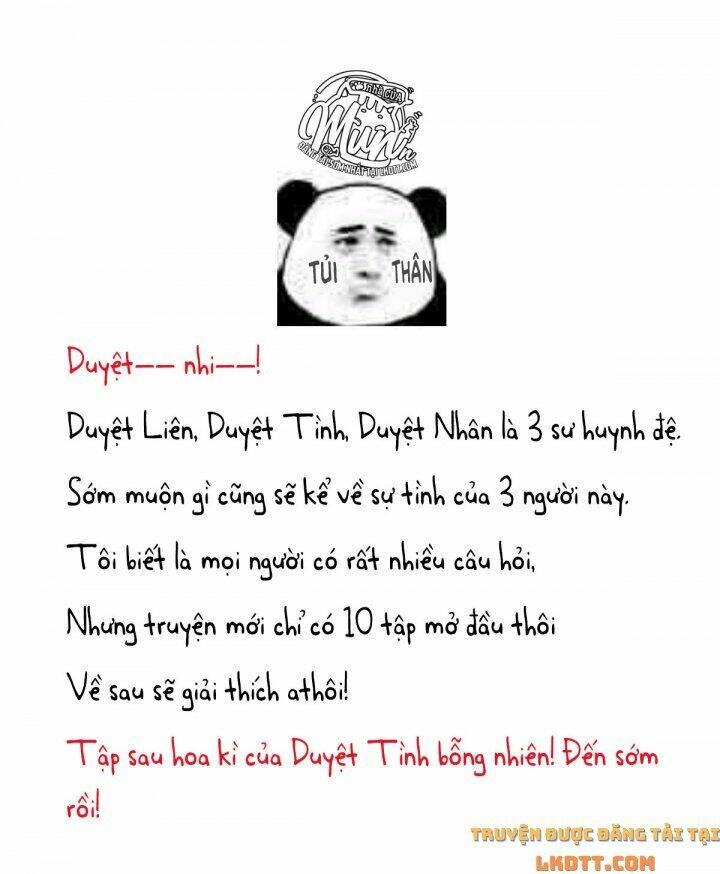 nhà của
Mun
ĐĂNG TẢI SỚM NHẤT TẠI LKDTT.COM
TỦI THÂN
Duyệt—— nhi——!
Duyệt Liên, Duyệt Tình, Duyệt Nhân là 3 sư huynh đệ.
Sớm muộn gì cũng sẽ kể về sự tình của 3 người này.
Tôi biết là mọi người có rất nhiều câu hỏi,
Nhưng truyện mới chỉ có 10 tập mở đầu thôi
Về sau sẽ giải thích athôi!
Tập sau hoa kì của Duyệt Tình bỗng nhiên! Đến sớm
rồi!
TRUYỆN ĐƯỢC ĐĂNG TẢI TẠI
LKDTT.COM